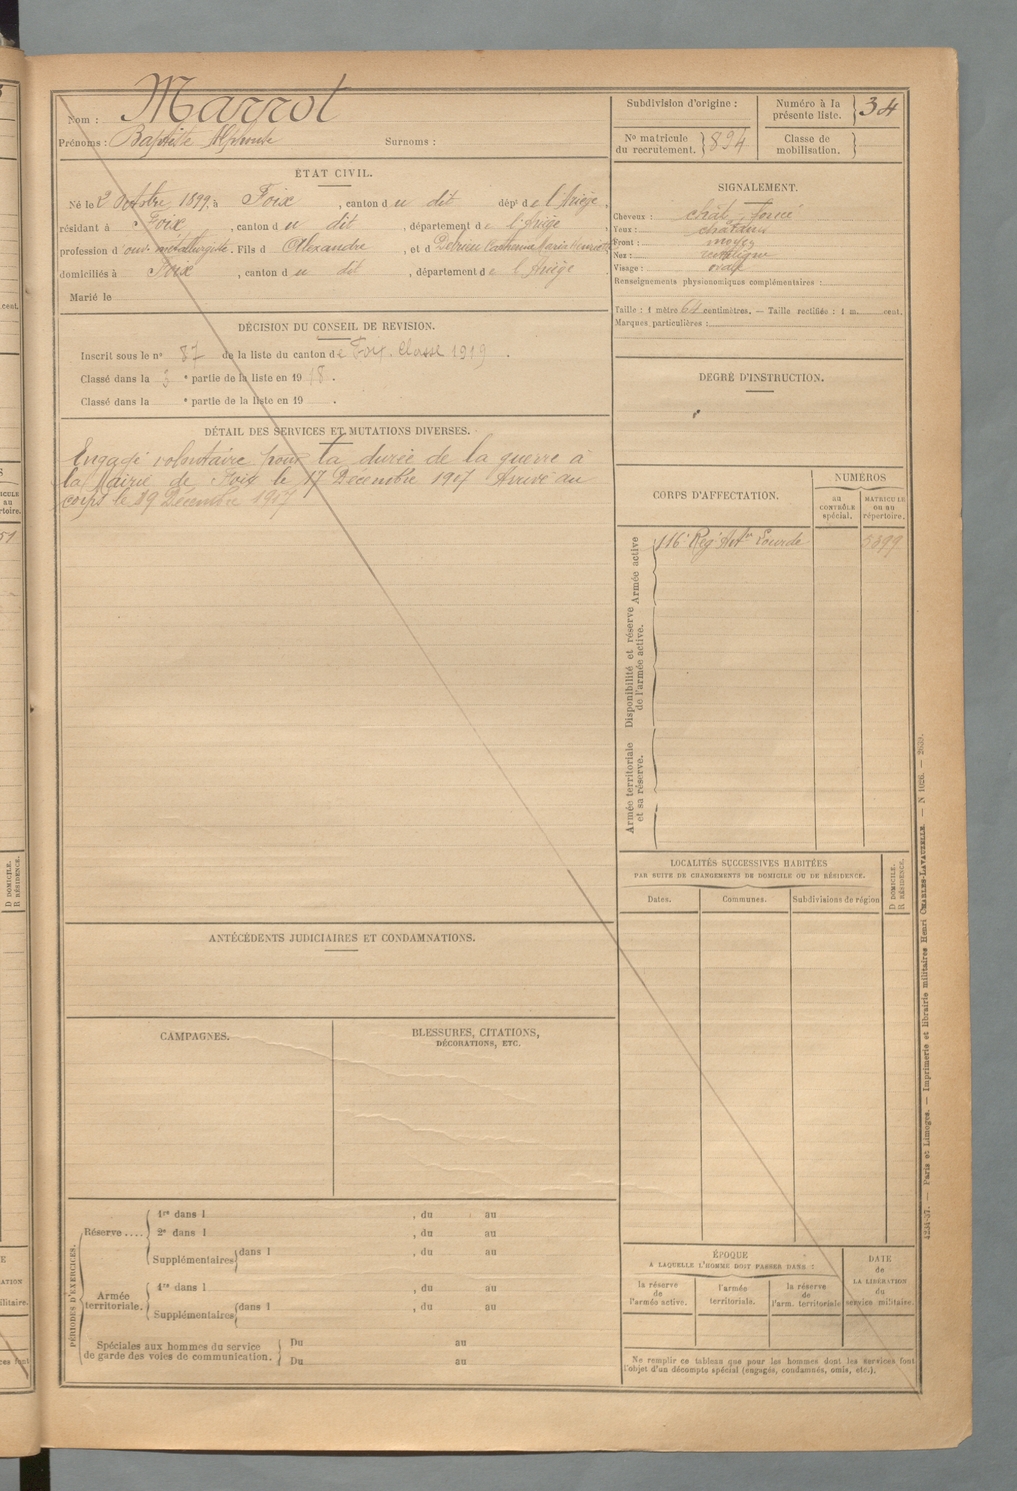 Nom : Marrot
Prénoms : Baptiste Alphonse Surnoms :
Subdivision d'origine :
Numéro à la présente liste. 34
No matricule du recrutement. 894
Classe de mobilisation.
ÉTAT CIVIL.
Né le 2 Octobre 1899, à Foix, canton du dit dépt de l'Ariège,
résidant à Foix, canton du dit, département de l'Ariège
profession d'ouv. métallurgiste. Fils d'Alexandre, et d
domiciliés à Foix, canton du dit, département de l'Ariège.
Marié le
SIGNALEMENT.
Cheveux : chât. foncé
Yeux : châtains
Front : moyen
Nez : rectiligne
Visage : ovale
Renseignements physionomiques complémentaires :
Taille : 1 mètre 64 centimètres. — Taille rectifiée : 1 m. cent.
Marques particulières :
DÉCISION DU CONSEIL DE REVISION.
Inscrit sous le no 87 de la liste du canton de Foix. Classe 1919.
Classé dans la e partie de la liste en 1918.
Classé dans la e partie de la liste en 19 .
DEGRÉ D'INSTRUCTION.
DÉTAIL DES SERVICES ET MUTATIONS DIVERSES.
Engagé volontaire pour la durée de la guerre à
la Mairie de Foix le 17 Décembre 1917 Arrivé au
corps le 19 Décembre 1917
CORPS D'AFFECTATION.
NUMÉROS
au CONTRÔLE spécial.
MATRICULE OU AU répertoire.
Armée active
116e Rég. Artie Lourde
Disponibilité et réserve de l'armée active.
Armée territoriale et sa réserve.
LOCALITÉS SUCCESSIVES HABITÉES
PAR SUITE DE CHANGEMENTS DE DOMICILE OU DE RÉSIDENCE.
D DOMICILE.
R RÉSIDENCE.
Dates. Communes. Subdivisions de région
ANTÉCÉDENTS JUDICIAIRES ET CONDAMNATIONS.
CAMPAGNES.
BLESSURES, CITATIONS,
DÉCORATIONS, ETC.
PÉRIODES D'EXERCICES.
Réserve....
1re dans l , du au
2e dans l , du au
Supplémentaires dans l , du au
Armée territoriale.
1re dans l , du au
Supplémentaires dans l , du au
Spéciales aux hommes du service
de garde des voies de communication.
Du au
Du au
ÉPOQUE
A LAQUELLE L'HOMME DOIT PASSER DANS :
la réserve de l'armée active.
l'armée territoriale.
la réserve de l'arm. territoriale
DATE de LA LIBÉRATION du service militaire.
Ne remplir ce tableau que pour les hommes dont les services font
l'objet d'un décompte spécial (engagés, condamnés, omis, etc.).
Paris et Limoges. — Imprimerie et librairie militaires Henri CHARLES-LAVAUZELLE.